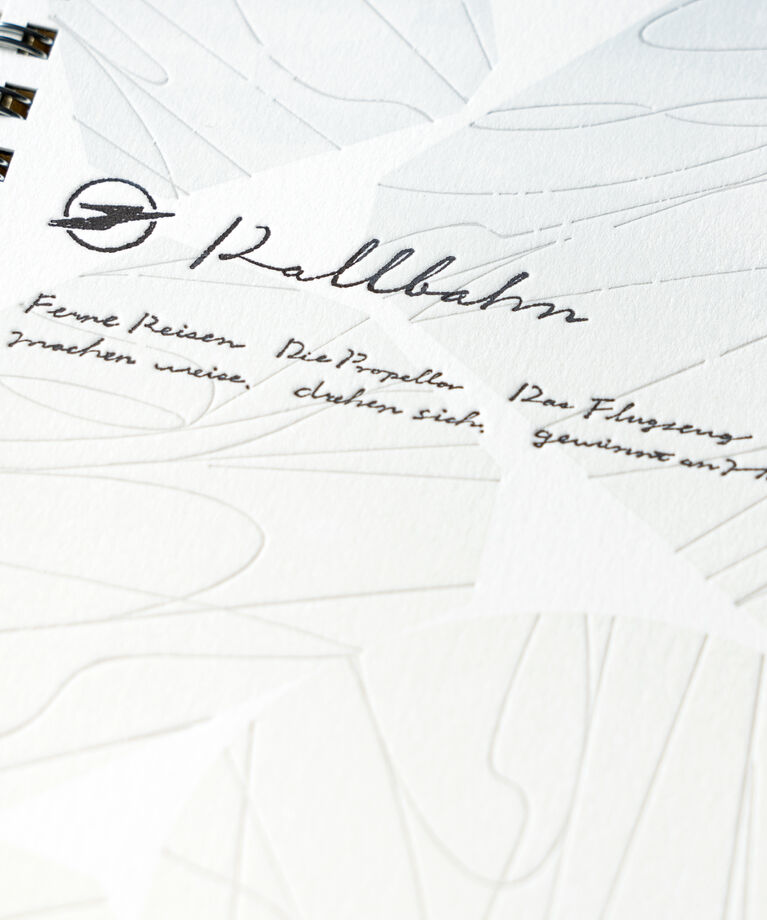 Rollbahn
Ferne Reisen
machen weise.
Die Propeller
drehen sich.
Das Flugzeug
gewinnt an